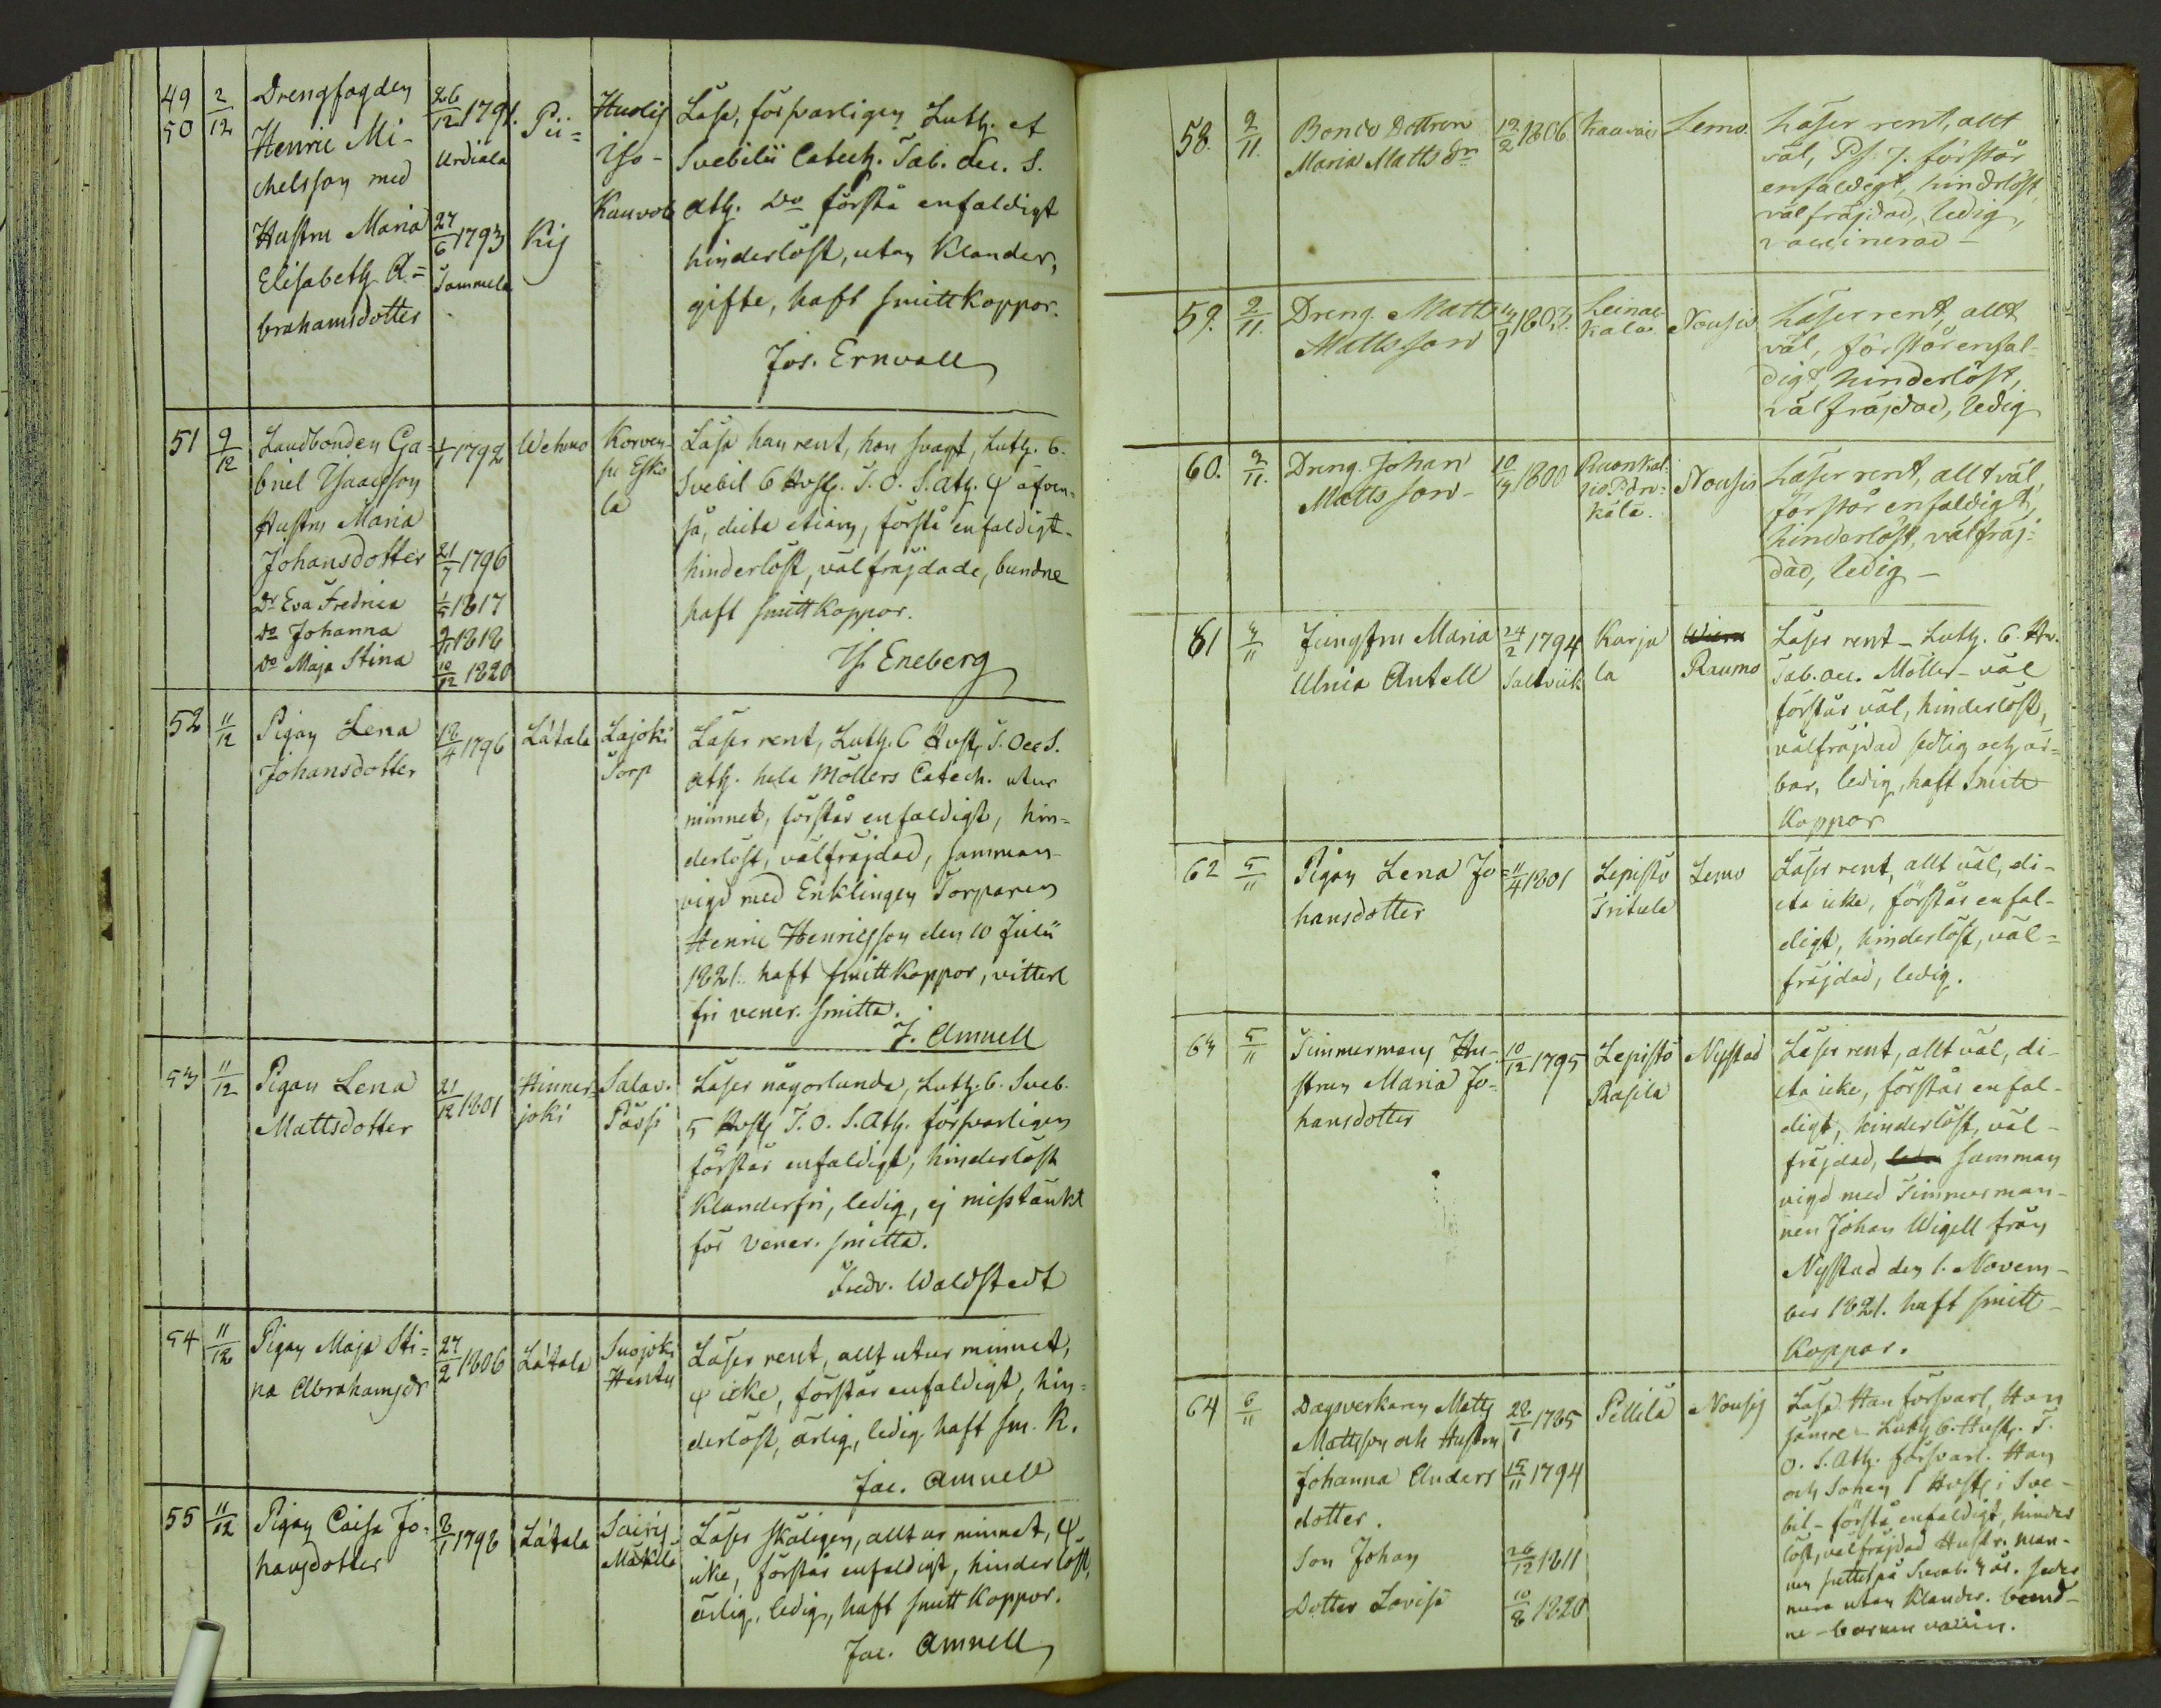 49
50
2/12
Drengfogden
Henric Mi-
chelsson med
Hustru Maria
Elisabeth A=
brahamsdotter
26/12 1791.
Urdiala
27/6 1793
Sommula
Pii=
Kis
Huolis
Yso-
Kauvola
Läsa, försvarligen Luth. et
Svebilii Catech. Tab. Oec. S.
Ath. Do förstå enfaldigt
hinderlöst, utan Klander,
gifte, haft smittkoppor.
Jos. Ernvall
51
9/12
Landbonden Ga=
briel Ysaacsson
Hustru Maria
Johansdotter
Dr Eva Fredrica
Do Johanna
Do Maja Stina
1/1 1792
21/7 1796
1/5 1817
9/11 1818
10/12 1820
Wehmo
Korven
pä Esko
la
Läsa han rent, hon svagt, Luth. 6.
Svebil 6 Hvst. T. O. S. Ath. φ äfven-
så, dicta etiam, förstå enfaldigt-
hinderlöst, välfräjdade, bundne
haft smittkoppor.
Ys. Eneberg
52
11/12
Pigan Lena
Johansdotter
18/4 1796
Lätala
Lajoki
Torp
Läser rent, Luth. 6 Hvst. T. Oec S.
Ath. hela Möllers Catech. utur
minnet, förstår enfaldigt, hin=
derlöst, välfräjdad, samman-
vigd med Enklingen Torparen
Henric Henricsson den 10 Julii
1821. haft smittkoppor, vitterl
fri vener. smitta.
J. Amnell
53
11/12
Pigan Lena
Mattsdotter
21/12 1801
Hinner=
joki
Salav.
Pässi
Läser någorlunda, Luth. 6. Sveb.
5 Hvst. T. O. S. Ath. försvarligen
förstår enfaldigt, hinderlöst
Klanderfri, ledig, ej misstänkt
för vener. smitta.
Fredr. Waldstedt
54
11/12
Pigan Maja Sti=
na Abrahamsdr
27/2 1806
Lätala
Suojoki
Hentu
Läser rent, allt utur minnet,
φ icke, förstår enfaldigt, hin=
derlöst, ärlig, ledig haft sm. K.
Jac. Amnell
55
11/12
Pigan Caisa Jo=
hansdotter
2/1 1798
Lätala
Sairis
Mäkilä
Läser skäligen, allt ur minnet, φ
icke, förstår enfaldigt, hinderlöst,
ärlig, ledig, haft smittkoppor.
Jac. Amnell
58.
2/11.
Bonde Dottren
Maria Matts Dr
12/2 1806.
Kaavais
Lemo.
Läser rent, allt
väl, Ps. 7. förstår
enfaldigt, hindrlöst,
välfräjdad, ledig,
vaccinerad-
59.
2/11.
Dreng. Matts
Mattsson
14/9 1803.
Leinac
kala.
Nousis
Läser rent, allt
väl, förstår enfal-
digt, hinderlöst,
välfräjdad, ledig
60.
2/11.
Dreng. Johan
Mattsson-
10/4 1800
Nousis
Läser rent, allt väl,
förstår enfaldigt,
hinderlöst, välfräj-
dad, ledig-
61
4/11
Jungfru Maria
Ulrica Antell
24/2 1794
Saltvik
Karja
la
Raumo
Läser rent- Luth. 6. Hv.
Tab. Oec. Möller- väl
förstår väl, hinderlöst,
välfräjdad sedlig och är=
bar, ledig, haft smitt
Koppor
62
5/11
Pigan Lena Jo=
hansdotter
11/4 1801
Lepistö
Tritula
Lemo
Läser rent, allt väl, di-
cta icke, förstår enfal-
digt, hinderlöst, väl=
fräjdad, ledig.
63
5/11
Timmermans Hu-
strun Maria Jo-
hansdotter
10/12 1795
Lepistö
Rasila
Nystad
Läser rent, allt väl, di-
cta icke, förstår enfal-
digt, hinderlöst, väl-
fräjdad, samman
vigd med Timmerman-
nen Johan Wigell från
Nystad den 1. Novem-
ber 1821. haft smitt-
Koppor.
64
6/11
Dagsverkaren Matts
Mattsson och Hustru
Johanna Anders
dotter.
Son Johan
Dotter Lovisa
28/1 1785
15/11 1794
26/12 1811
10/8 1820
Pellilä
Nousis
Läsa Han försvarl, Hon
sämre- Luth 6. Hvst. T.
O. S. Ath. försvarl. Han
och Sonen 1 Hvst i Sve-
bil- förstå enfaldigt, hinder
löst, välfräjdad Hustr. man-
nen suttit på år. seder
mera utan Klander. bund-
ne- barnen vaccin.